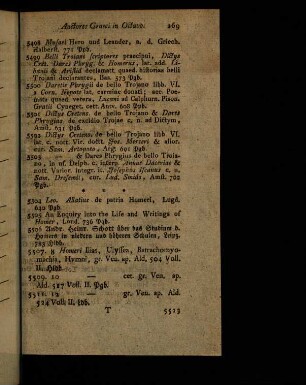 Auctores Graeci in Octavo. 269
5498 Musæi Hero und Leander, a. d. Griech.
Halberst. 775 Pgb.
5499 Belli Trojani scriptores præcipui, Dictys
Cret. Dares Phryg. & Homerus, lat. add. Li-
banii & Aristid declamatt. quæd. historias belli
Trojani declarantes, Bas. 573 Pgb.
5500 Daretis Phrygii de bello Trojano libb. VI
a Corn. Nepote lat. carmine donati; acc. Poe-
mata quæd. vetera, Lucani ad Calphurn. Pison.
Gratii Cyneget. cett. Antv. 608 Pgb.
5501 Dictys Cretens. de bello Trojano & Dares
Phrygius de excidio Trojae c. n. ad Dictym,
Amst. 631 Pgb.
5502 Dictys Cretens. de bello Trojano libb. VI.
lat. c. nott. Vir. doctt. Jos. Merceri & alior.
edit. Sam. Artopœus, Arg. 691 Pgb
5503 — & Dares Phrygius de bello Troja-
no, in us. Delph. c. interpr. Annæ Daceriæ &
nott. Varior. integr. it. Josephus Iscanus c. n.
Sam. Dresemii, cur. Lud. Smids, Amst. 702
Pgb.
* * *
5504 Leo. Allatius de patria Homeri, Lugd.
640 Pgb.
5505 An Enquiry into the Life and Writings of
Homer, Lond. 736 Pgb.
5506 Andr. Heinr. Schott über das Studium d.
Homers in niedern und höhern Schulen, Leipz.
783 Hlbb.
5507. 8 Homeri Ilias, Ulyssea, Batrachomyo-
machia, Hymni, gr. Ven. ap. Ald. 504 Voll.
II. Hlbb.
5509. 10 — — cet. gr. Ven. ap.
Ald. 517 Voll. II. Pgb.
5511. 12 — gr. Ven. ap. Ald.
524 Voll II. Ldb.
T 5513